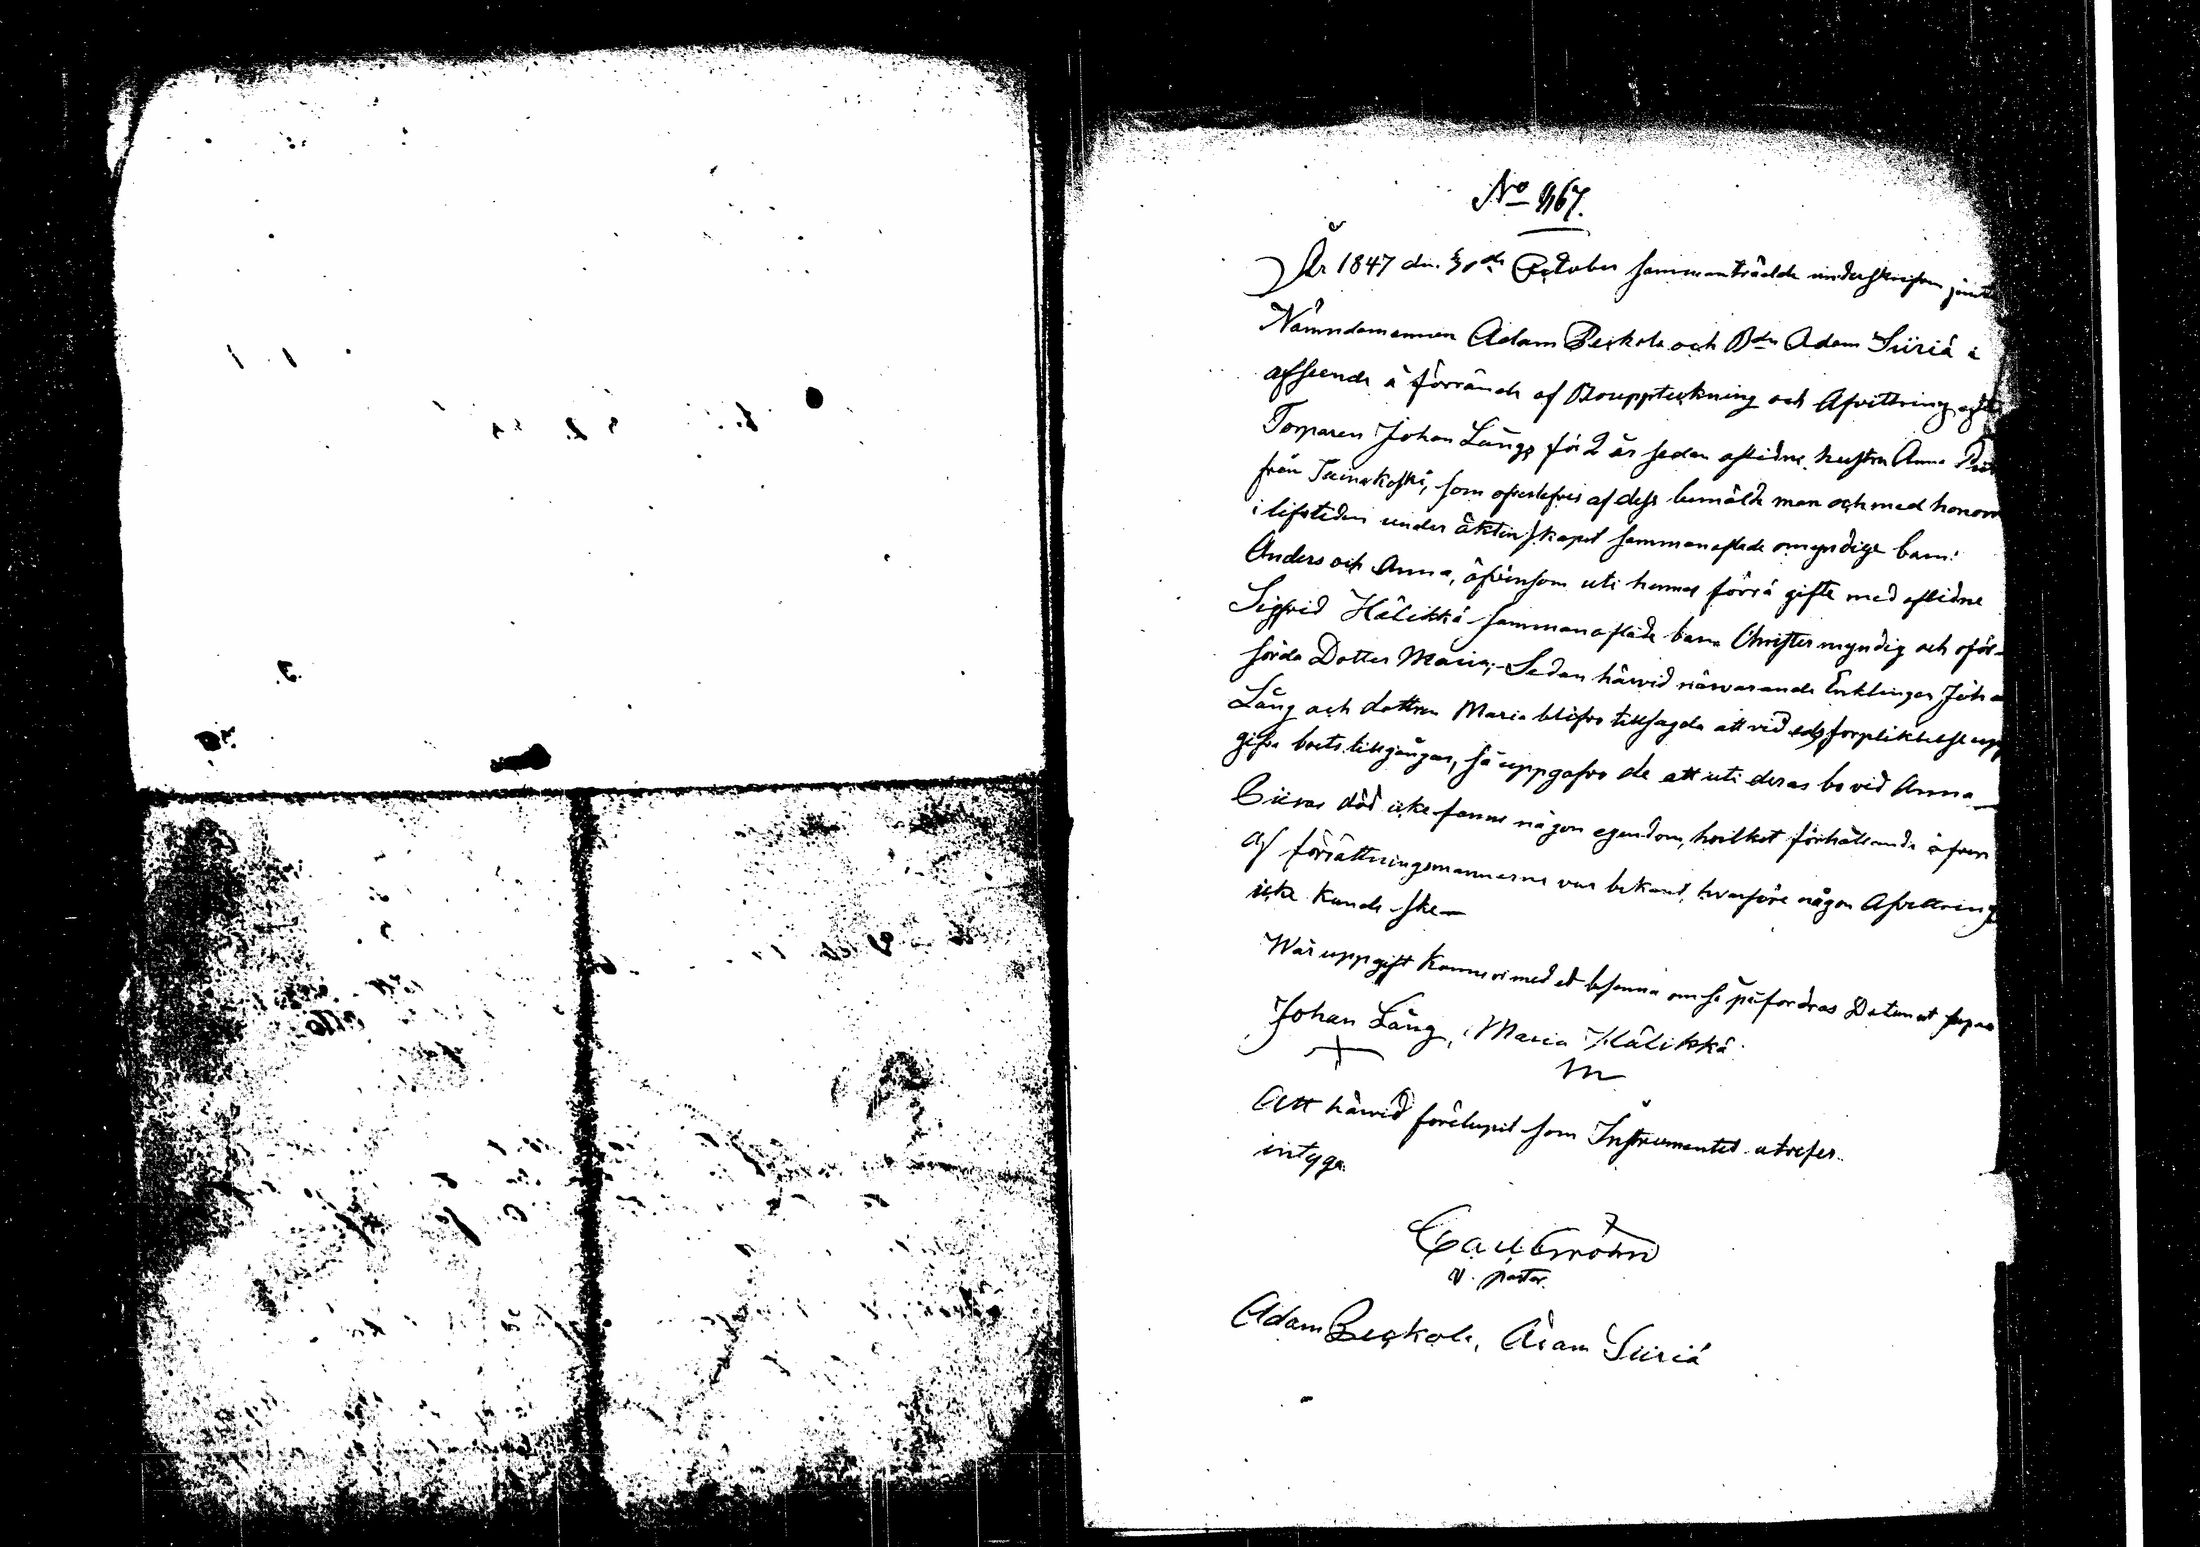 No 467.
År 1847 den 30de October sammanträdde undertecknad jemte
Nämndemannen Adam Peskola och Bdn Adam Siiriä i
afseende å förrände af Bouppteckning och Afvittring efter
Torparen Johan Långs för 2 år sedan aflidne hustru Anna
från Tainakoski, som öfverlefves af dess bemälde man och med honom
i lifstiden under äktenskapet sammanaflade omyndige barn:
Anders och Anna, äfvensom uti hennes förra gifte med aflidne
Sigfrid Hälikkä sammanaflade barn Christer myndig och oför-
sörda Dotter Maria; Sedan härvid närvarande Enklingen Joha
Lång och dottren Maria blifvo tillsagde att vid eds förpliktelse upp
gifva boets tillgångar, så uppgåfvo de att uti deras bo vid Anna
död icke fanns någon egendom, hvilket förhållande äfven
af förrättningsmannerne var bekant, hvarföre någon Afvittring
icke kunde ske
Wår uppgift kunna vi med ed besanna om så påfordras Datum ut supra
Johan Lång, Maria Hälikkä
Att härvid förelupit som Instrumentet utvisar
intyga
v. pastor.
Adam Peskola, Adam Siiriä